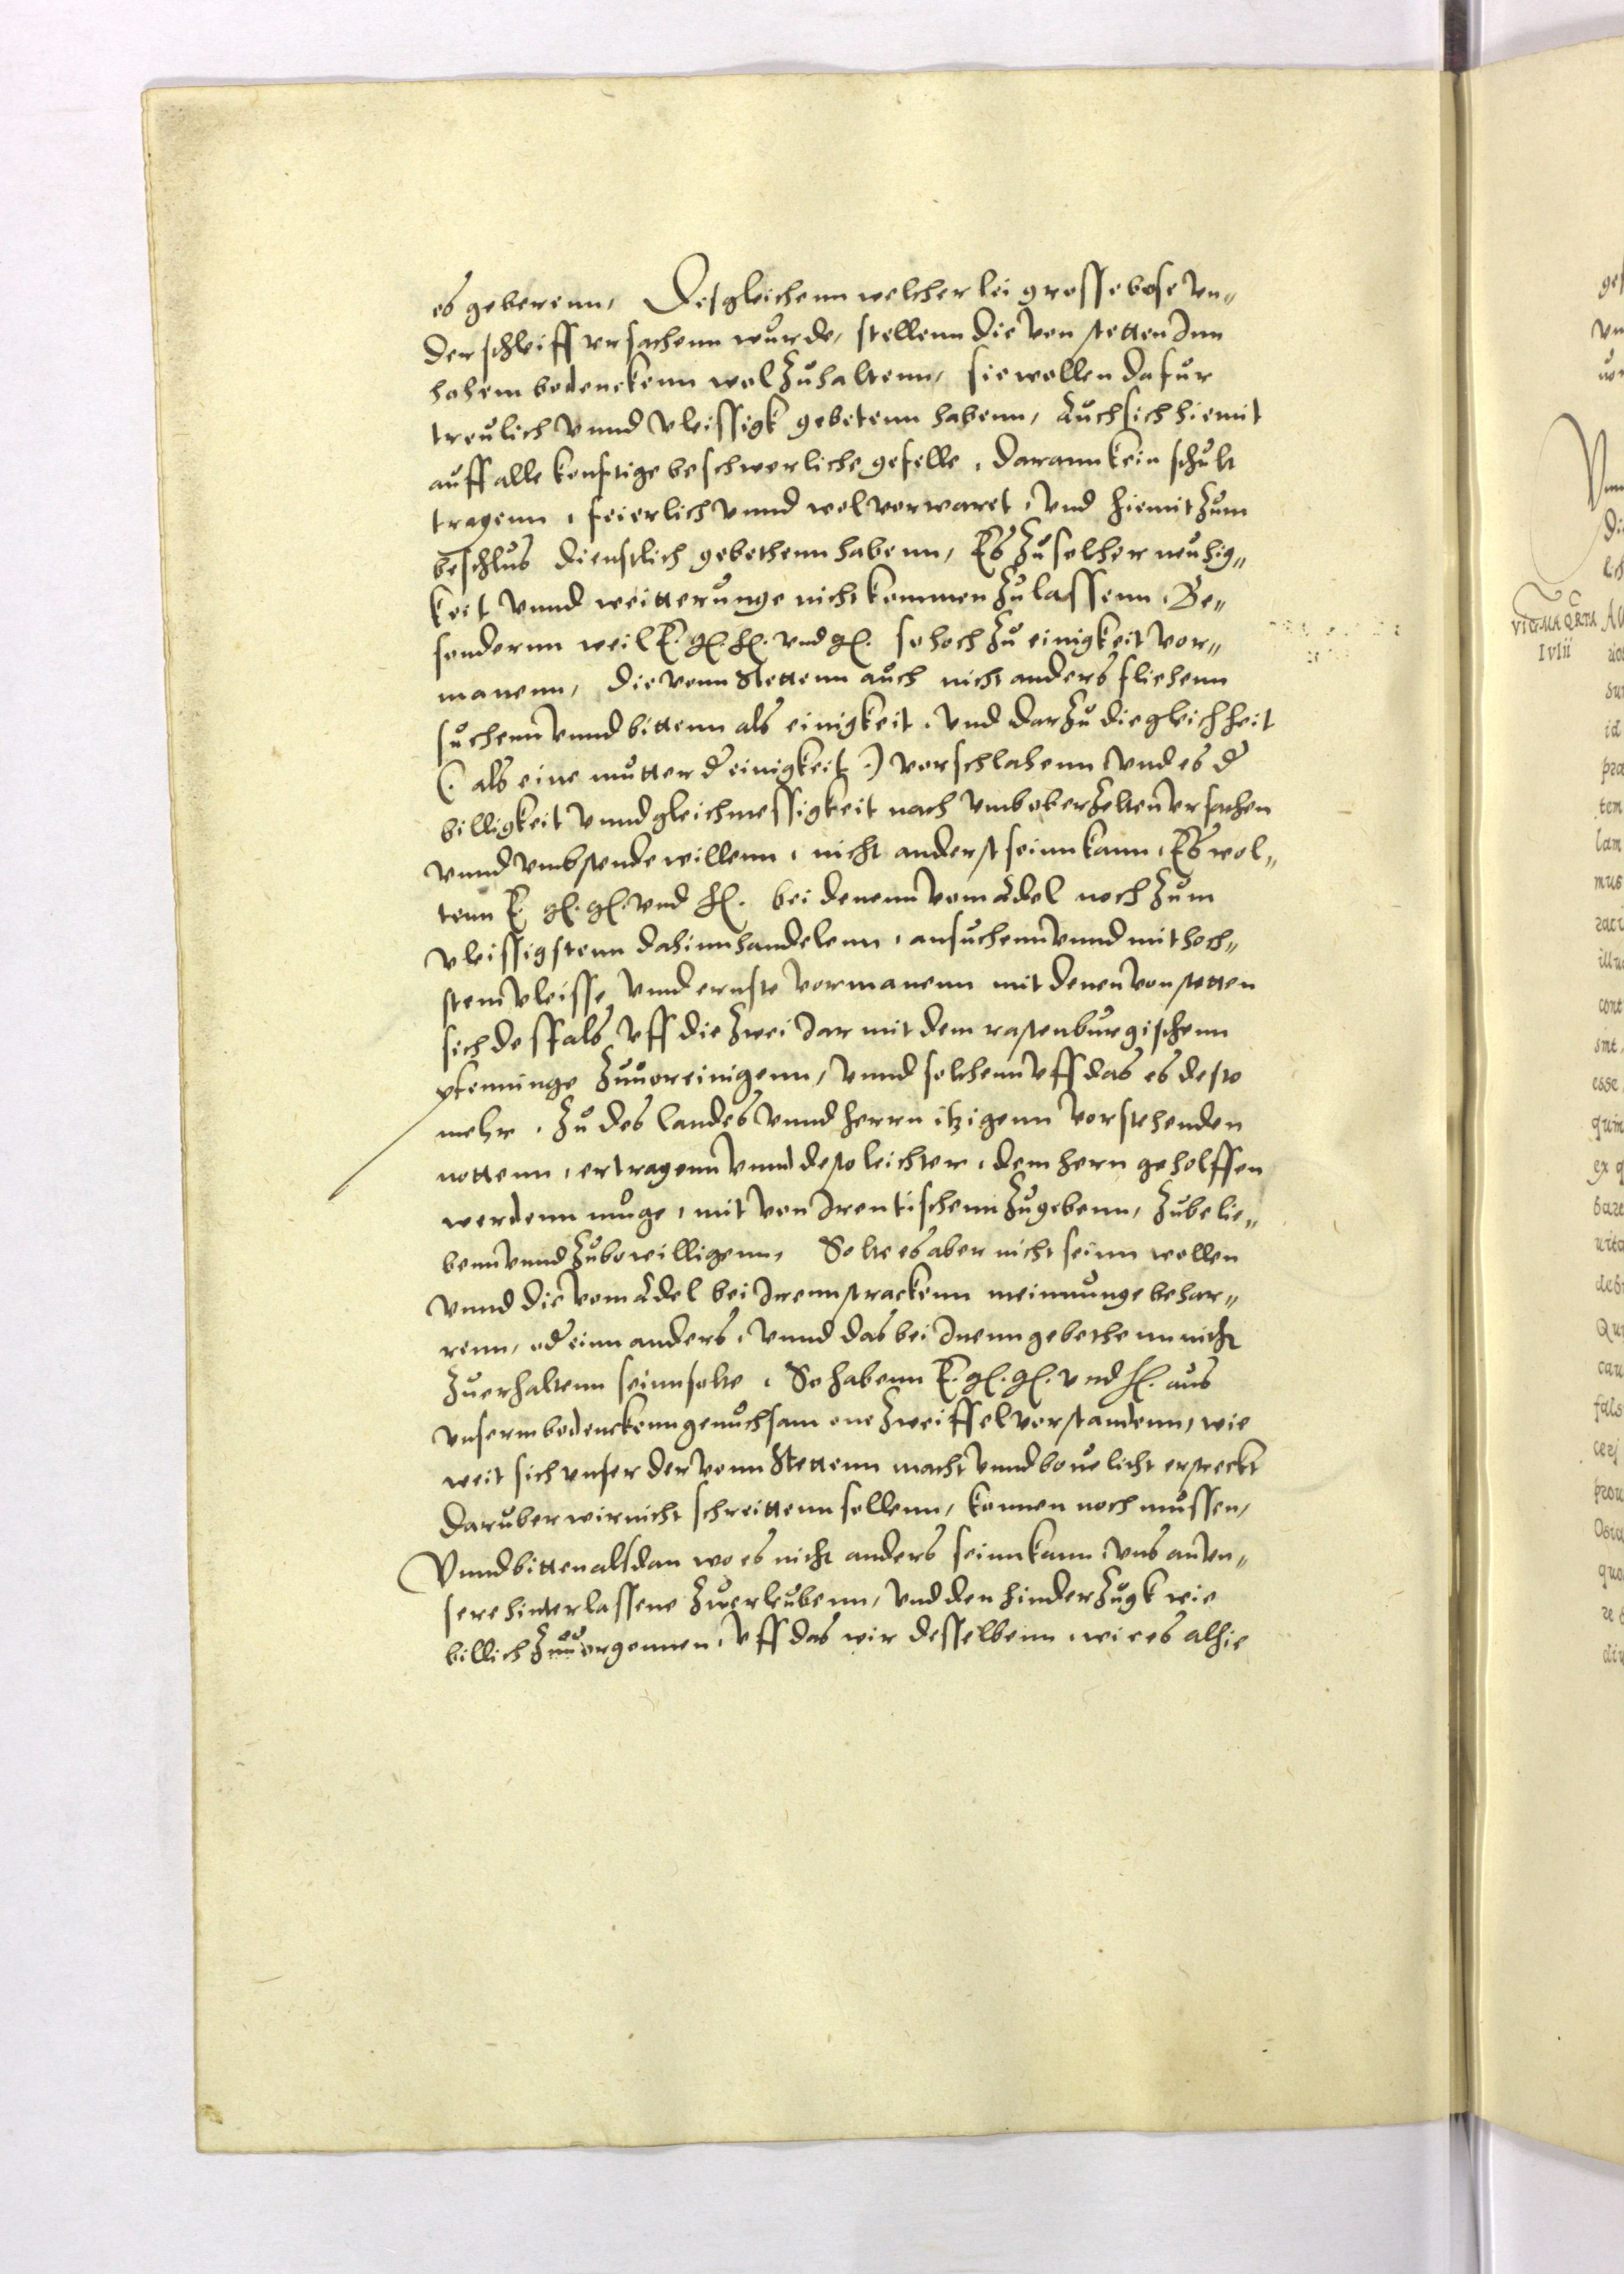 es geberenn, Desgleichenn welcherlei grosse bose vn„
derschleiff vrsachenn wurde, stellenn die von stetten Inn
hohem bedenckenn wol zuhaltenn, sie wollen dafur
treulich vnnd vleissigk gebetenn habenn, auch sich hiemit
auff alle konftige beschwerliche gefelle, darann kein schult
tragenn, feierlich vnnd wol vorwaret, vnd hiemit zum
beschlus dienstlich gebethenn habenn, Es zu solcher neuhig„
keit vnnd weitterunge nicht kommen zulassenn, Be„
sondernn weil E. gl. hl. vnd gl. so hoch zu einigkeit vor„
manenn, die vonn Stettenn auch nicht anders fliehenn
suchenn vnnd bittenn als einigkeit, vnd darzu die gleichheit
(. als eine mutter d einigkeit .) vorschlahenn vnd es d
billigkeit vnnd gleichmessigkeit nach vmb oberzelten vrsachen
vnnd vmbstende willenn, nicht anderst seinn kann, Es wol„
tenn E. gl. gl. vnd hl. bei denenn vom Adel noch zum
vleissigstenn dahinn handelenn, ansuchenn vnnd mit hoch„
stem vleisse vnd ernste vormanenn mit denen von stetten
sich desfals vff die zwei Jar mit dem rastenburgischenn
pfenninge zuuoreinigenn, vnnd solchenn vff das es desto
mehr, zu des landes vnnd herrn itzigenn vorstehenden
nottenn, ertragenn vnnd desto leichter, dem hern geholffen
werdenn muge, mit von Iren tischenn zugebenn, zubelie„
benn vnnd zubewilligenn, Solte es aber nicht seinn wollen
vnnd die vom Adel bei Irenn strackenn meinunge behar„
renn, od einn anders, vnnd das bei Inenn gebethenn nicht
zuerhaltenn seinn solte, So habenn E. gl. gl. vnd hl. aus
vnserm bedenckenn genuchsam one zweiffel vorstandenn, wie
weit sich vnser der vonn Stettenn macht vnnd beuelicht erstreckt
Daruber wir nicht schreittenn sollenn, konnen noch mussen,
Vnnd bitten alsdan wo es nicht anders seinn kann, vns an vn„
sere hinterlassene zuerleubenn, vnd den hinderzugk wie
billich zuuorgonnen, vff das wir desselbenn, wie es alhie